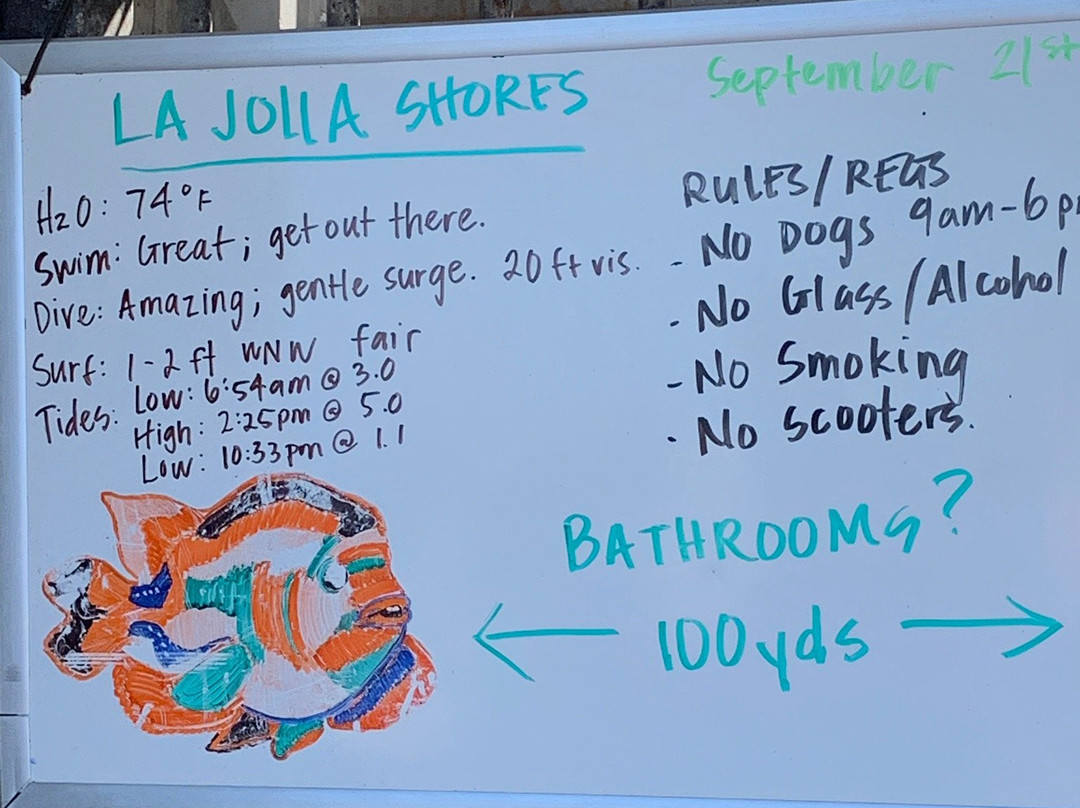 LA JOLLA SHORES
September 21st
H2O: 74°F
Swim: Great; get out there.
Dive: Amazing; gentle surge. 20 ft vis.
Surf: 1-2 ft WNW fair
Tides: Low: 6:54am @ 3.0
High: 2:25pm @ 5.0
Low: 10:33pm @ 1.1
RULES/REGS
- No Dogs 9am-6pm
· No Glass/Alcohol
- No Smoking
· No scooters.
BATHROOMS?
← 100yds →